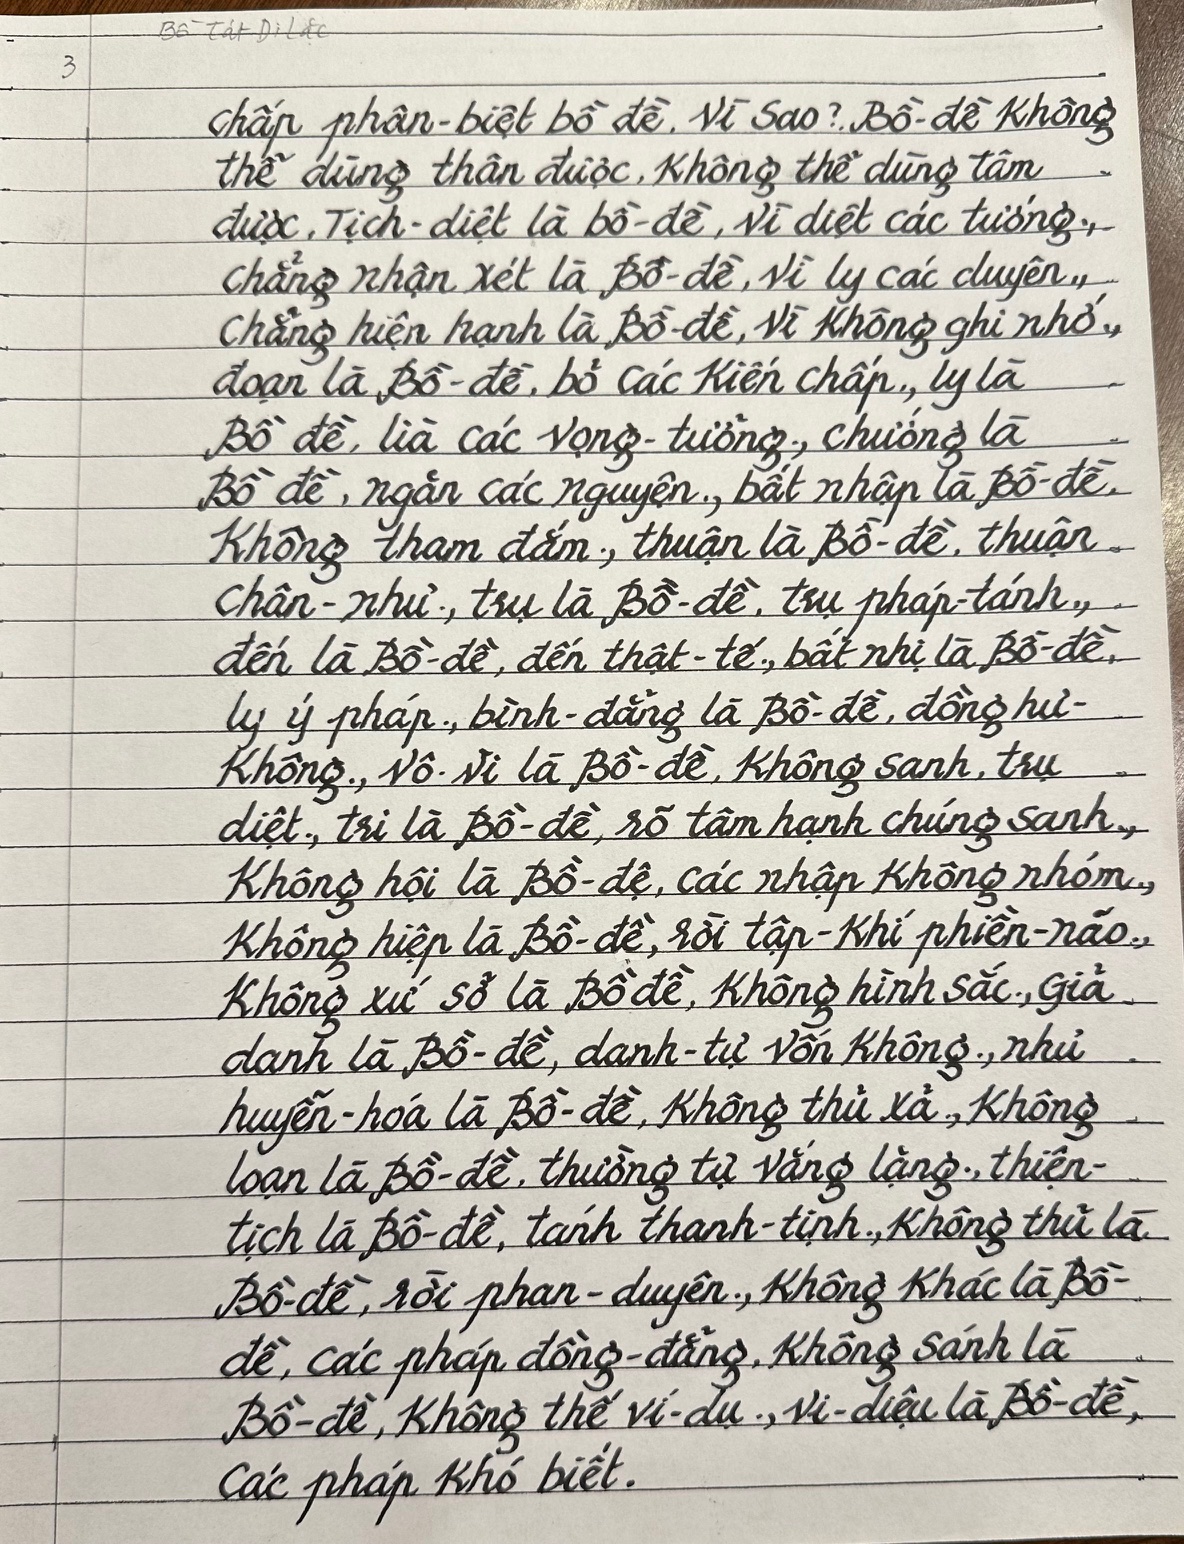 Bồ Tát Di Lặc
3
chấp phân-biệt bồ đề. Vì Sao? Bồ-đề Không
thể dùng thân được, Không thể dùng tâm
được. Tịch-diệt là bồ-đề, Vì diệt các tướng.,
chẳng nhận xét là Bồ-đề, Vì ly các duyên.,
Chẳng hiện hạnh là Bồ-đề, Vì Không ghi nhớ.,
đoạn là Bồ-đề, bỏ các Kiến chấp., ly là
Bồ đề, lià các Vọng-tưởng., chướng là
Bồ đề, ngăn các nguyện., bất nhập là Bồ-đề,
Không tham đắm., thuận là Bồ-đề, thuận
chân-như., trụ là Bồ-đề, trụ pháp-tánh.,
đến là Bồ-đề, đến thật-tế., bất nhị là Bồ-đề,
ly ý pháp., bình-đẳng là Bồ-đề, đồng hư-
Không., Vô-Vi là Bồ-đề, Không sanh, trụ
diệt., tri là Bồ-đề, rõ tâm hạnh chúng sanh.,
Không hội là Bồ-đệ, các nhập Không nhóm.,
Không hiệp là Bồ-đề, rời tập-Khí phiền-não.,
Không xứ sở là Bồ đề, Không hình sắc., Giả
danh là Bồ-đề, danh-tự Vốn Không., như
huyễn-hóa là Bồ-đề, Không thủ xả., Không
loạn là Bồ-đề, thường tự Vắng lặng., thiện-
tịch là Bồ-đề, tánh thanh-tịnh., Không thủ là
Bồ-đề, rời phan-duyên., Không Khác là Bồ-
đề, các pháp đồng-đẳng. Không sánh là
Bồ-đề, Không thế ví-dụ., Vi-diệu là Bồ-đề,
Các pháp Khó biết.